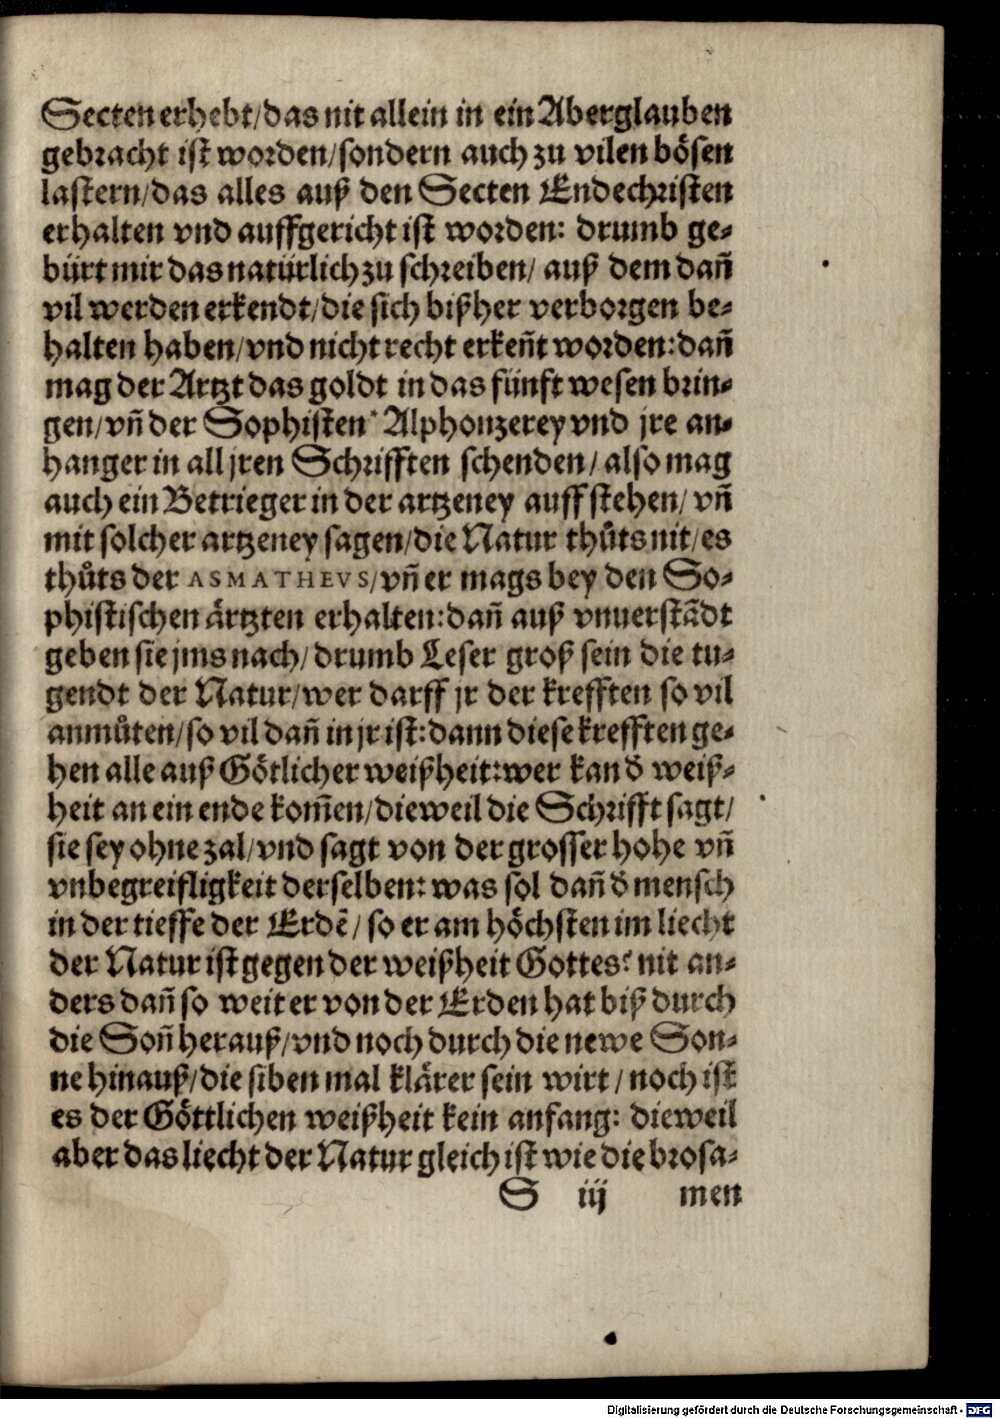 Secten erhebt/das nit allein in ein Aberglauben
gebracht ist worden/sondern auch zu vilen bösen
lastern/das alles auß den Secten Endechristen
erhalten vnd auffgericht ist worden: drumb ge-
bürt mir das natürlich zu schreiben/ auß dem dañ
vil werden erkendt/die sich bißher verborgen be-
halten haben/vnd nicht recht erkeñt worden:dañ
mag der Artzt das goldt in das fünft wesen brin-
gen/vñ der Sophisten Alphonzerey vnd jre an-
hanger in all jren Schrifften schenden/ also mag
auch ein Betrieger in der artzeney auffstehen/ vñ
mit solcher artzeney sagen/die Natur thůts nit/es
thůts der ASMATHEVS/vñ er mags bey den So-
phistischen ärtzten erhalten:dañ auß vnuerstãdt
geben sie jms nach/drumb Leser groß sein die tu-
gendt der Natur/wer darff jr der krefften so vil
anmůten/so vil dañ in jr ist:dann diese krefften ge-
hen alle auß Götlicher weißheit:wer kan đ weiß-
heit an ein ende kom̃en/dieweil die Schrifft sagt/
sie sey ohne zal/vnd sagt von der grosser hohe vñ
vnbegreifligkeit derselben: was sol dañ đ mensch
in der tieffe der Erdẽ/ so er am höchsten im liecht
der Natur ist gegen der weißheit Gottes? nit an-
ders dañ so weit er von der Erden hat biß durch
die Soñ herauß/vnd noch durch die newe Son-
ne hinauß/die siben mal klärer sein wirt/ noch ist
es der Göttlichen weißheit kein anfang: dieweil
aber das liecht der Natur gleich ist wie die brosa-
S iij men
Digitalisierung gefördert durch die Deutsche Forschungsgemeinschaft - DFG